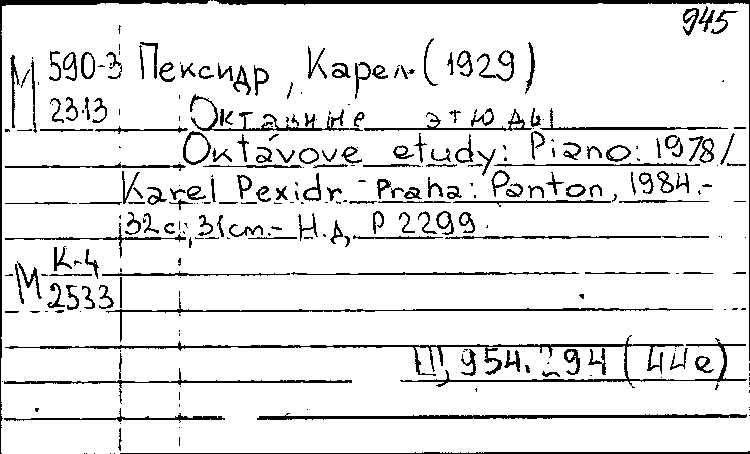 945
М 590-3 Пексидр, Карел. (1929)
23.13 Октавные этюды
Oktávove etudy: Piano: 1978/
Karel Pexidr. - Praha: Panton, 1984.-
32с., 31cm.- Н.д, P 2299.
М К-4
2533
Щ 954.294 (44е)